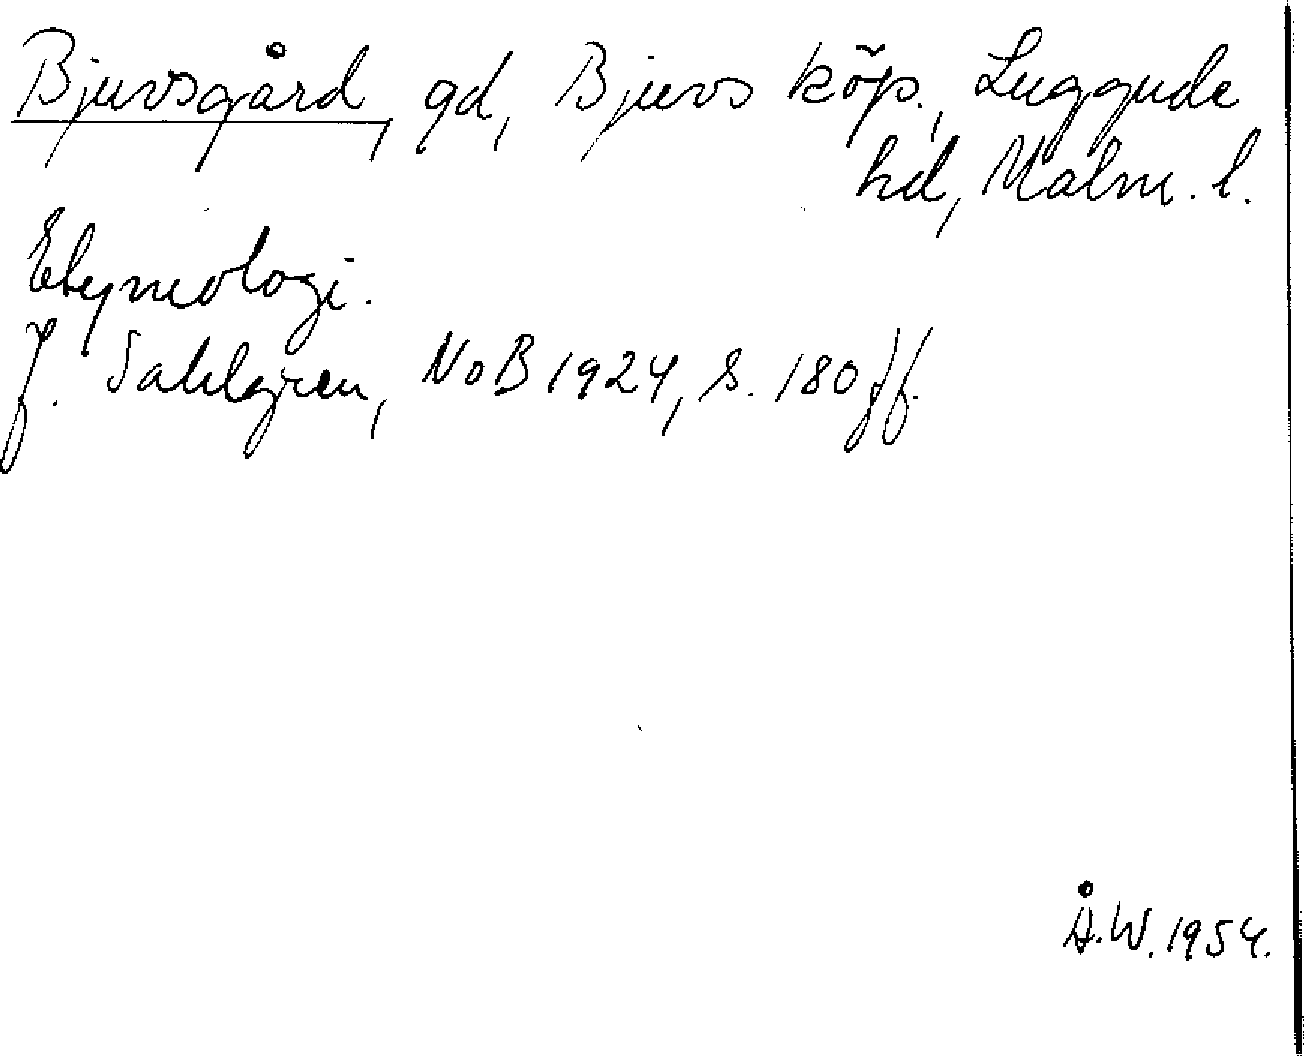 Bjuvsgård, gd, Bjuvs köp., Luggude
hd, Malm. l.
Etymologi.
J. Sahlgren, NoB 1924, s. 180 ff.
Å.W. 1954.